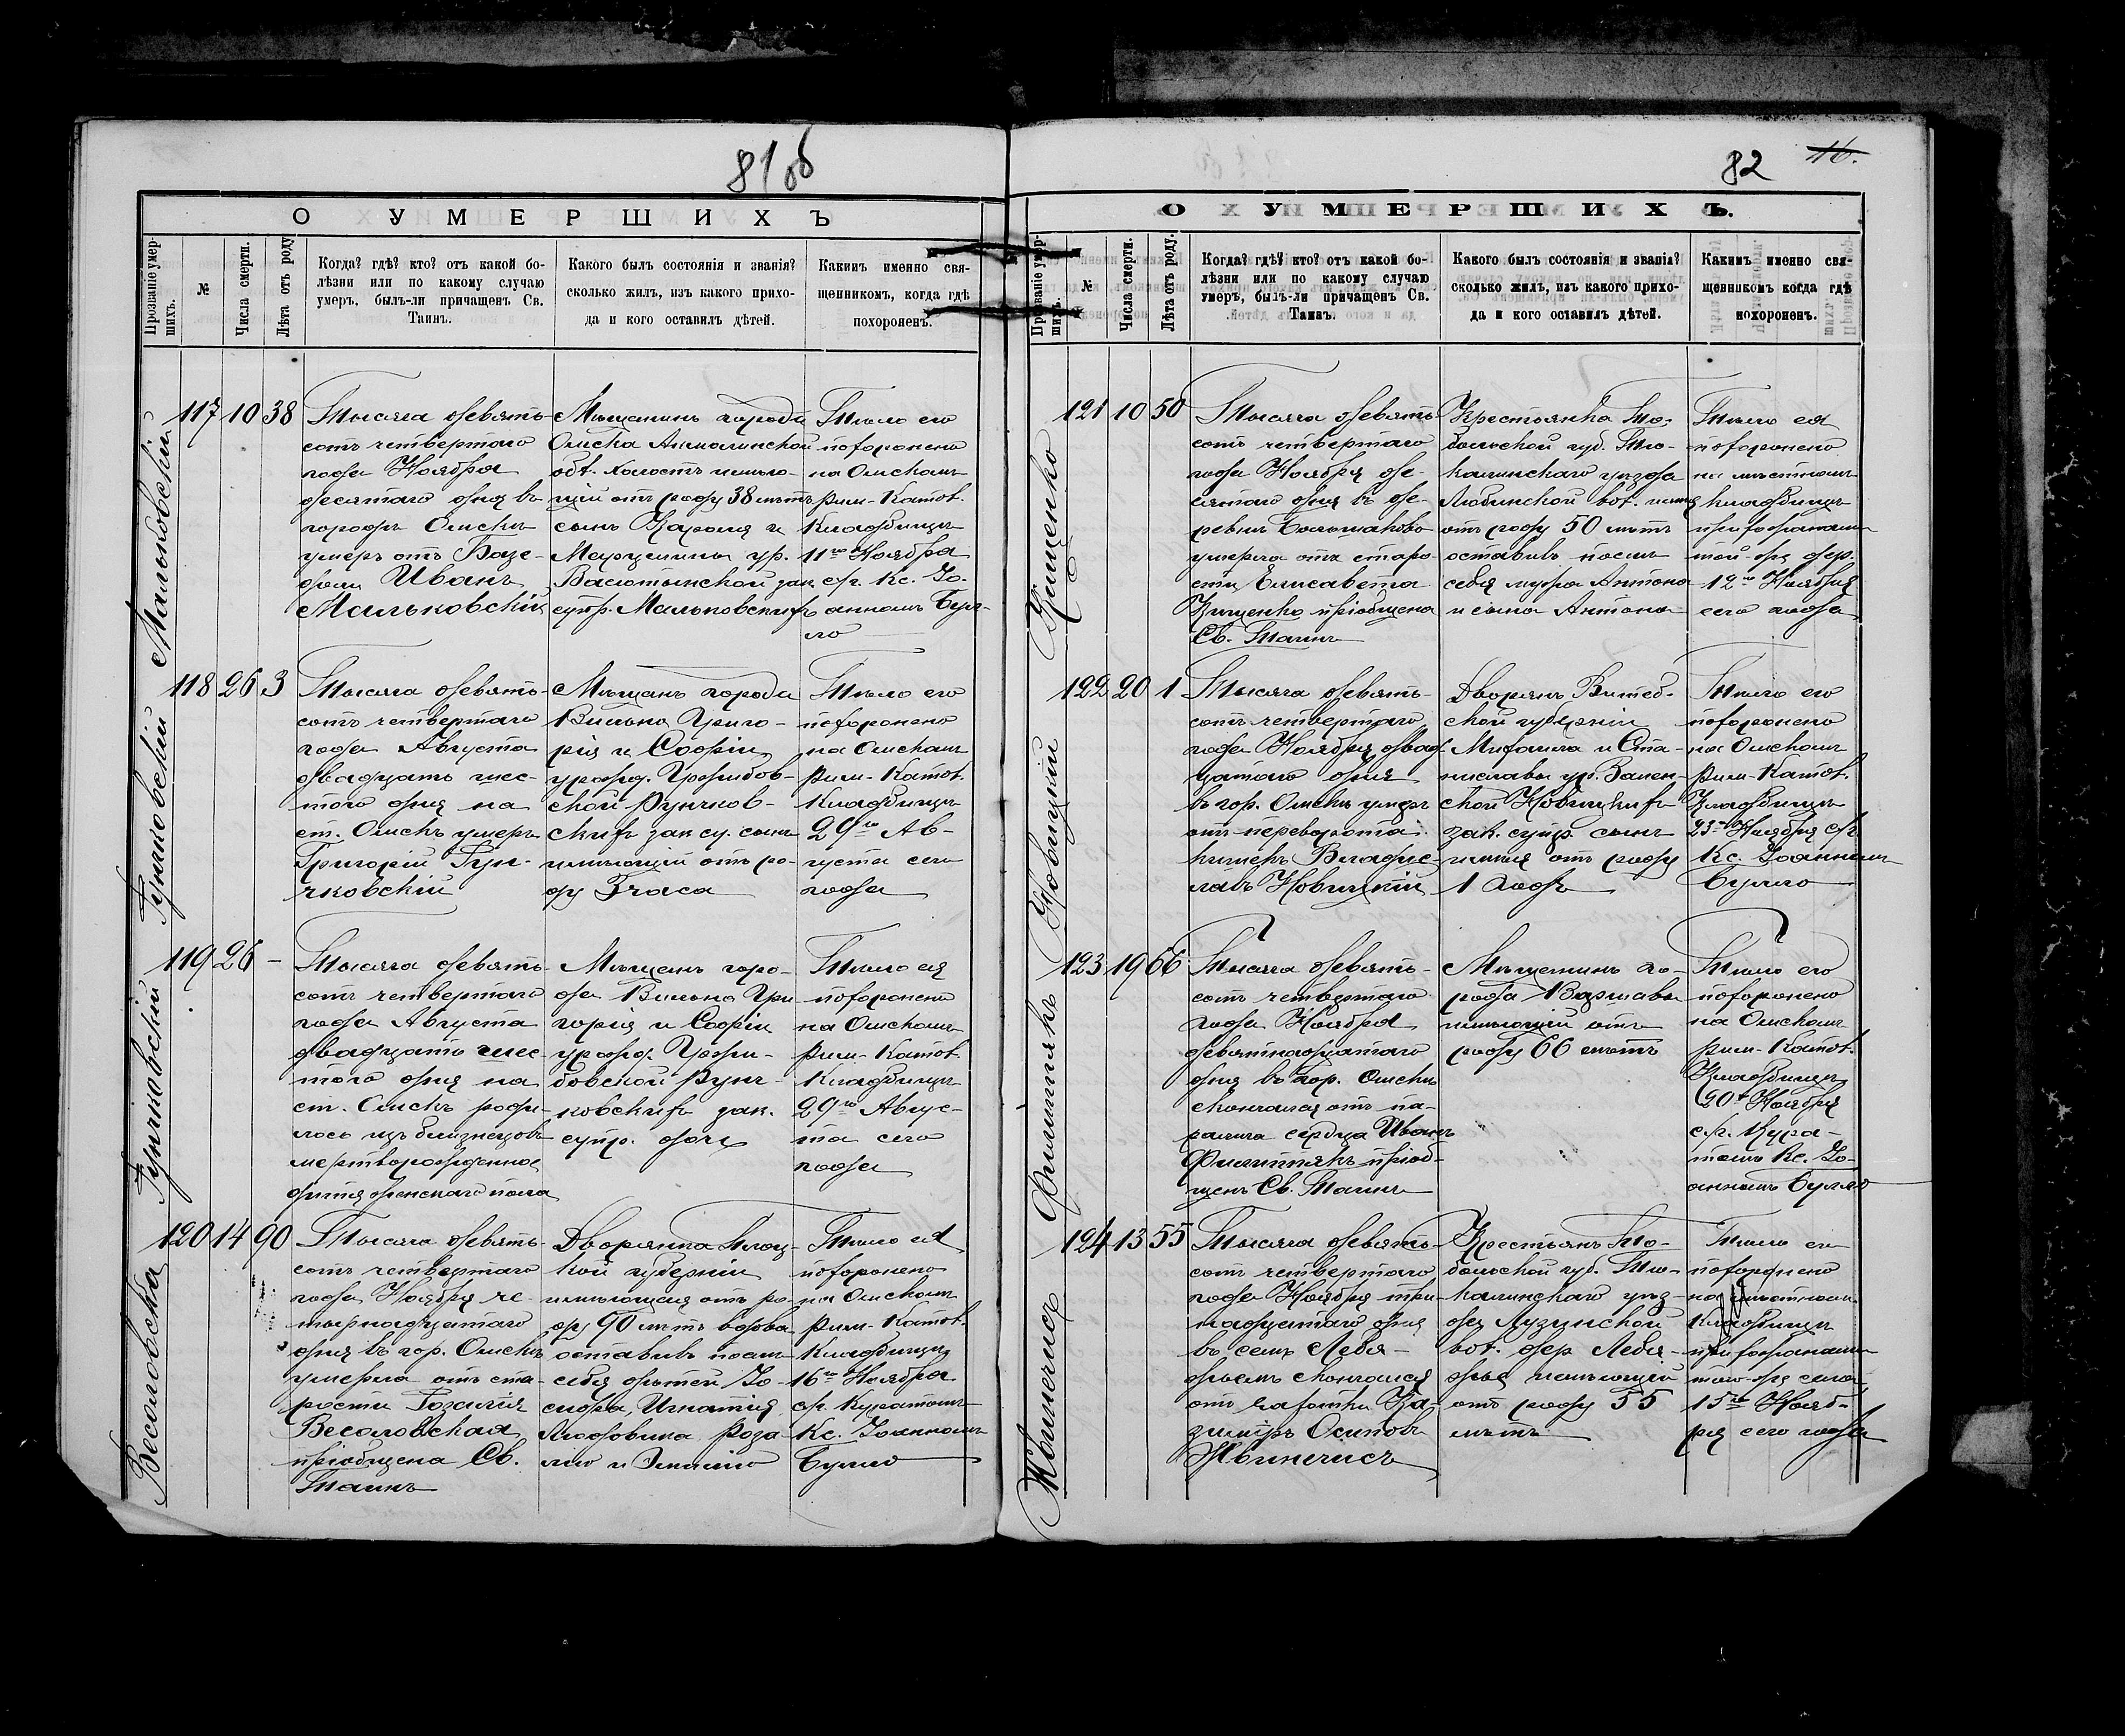 81об
О УМЕРШИХЪ
Прозваніе умер-
шихъ.
№
Числа смерти.
Лѣта отъ роду
Когда? гдѣ? кто? отъ какой бо-
лѣзни или по какому случаю
умеръ, былъ-ли причащенъ Св.
Таинъ.
Какого былъ состоянія и званія?
сколько жилъ, изъ какого прихо-
да и кого оставилъ дѣтей.
Какимъ именно свя-
щенникомъ, когда гдѣ
похороненъ.
Мальковскій
117
10
38
Тысяча девять-
сотъ четвертаго
года Ноября
десятаго дня въ
городѣ Омскѣ
умеръ отъ
Иванъ
Мальковскій
Мѣщанинъ города
Омска Акмолинской
обл. холостъ имѣю-
щій отъ роду 38 лѣтъ
сынъ Кароля и
Марцелины ур.
зак.
супр. Мальковскихъ
Тѣло его
похоронено
на Омскомъ
рим-катол.
кладбищѣ
11го Ноября
с/г. Кс. Іо-
анномъ Бул-
ло
Гунчковскій
118
26
3
Тысяча девять-
сотъ четвертаго
года Августа
двадцать шес-
того дня на
ст. Омскъ умеръ
Григорій Гун-
чковскій
Мѣщанъ города
Вильно Григо-
рія и Софіи
урожд.
ской
зак су. сынъ
имѣющій отъ ро-
ду 3 часа
Тѣло его
похоронено
на Омскомъ
рим-катол.
кладбищѣ
29го Ав-
густа сего
года
Гунчковскій
119
26
-
Тысяча девять-
сотъ четвертаго
года Августа
двадцать шес-
того дня на
ст. Омскъ роди-
лось изъ близнецовъ
мертворожденное
дитя женскаго пола
Мѣщанъ горо-
да Вильно Гри
горія и Софіи
урожд.
бовской
ковскихъ зак.
супр. дочь
Тѣло ея
похоронено
на Омскомъ
рим-катол.
кладбищѣ
29го Авгус-
та сего
года
Весоловска
120
14
90
Тысяча девять-
сотъ четвертаго
года Ноября че-
тырнадцатаго
дня въ гор. Омскѣ
умерла отъ ста-
рости Розалія
Весоловская
пріобщена Св.
Таинъ
Дворянка Плоц-
кой губерніи
имѣющая отъ ро-
ду 90 лѣтъ вдова
оставивъ послѣ
себя дѣтей Іо-
Игнатія
Людовика Роза
лію и Эмилію
Тѣло ея
похоронено
на Омскомъ
рим-катол.
кладбищѣ
16го Ноября
с/г. Куратомъ
Кс. Іоанномъ
Булло
82
16.
О УМЕРШИХЪ.
Прозваніе умер-
шихъ.
№
Числа смерти.
Лѣта отъ роду.
Когда? гдѣ? кто? отъ какой бо-
лѣзни или по какому случаю
умеръ, былъ-ли причащенъ Св.
Таинъ.
Какого былъ состоянія и званія?
сколько жилъ, изъ какого прихо-
да и кого оставилъ дѣтей.
Какимъ именно свя-
щенникомъ когда гдѣ
похороненъ.
Кищенко
121
10
50
Тысяча девять-
сотъ четвертаго
года Ноября де-
сятаго дня въ де-
ревнѣ Большаково
умерла отъ старо-
сти Елисавета
Кищенко пріобщена
Св. Таинъ
Крестьянка То-
больской губ. Тю-
калинскаго уѣзда
Любинской вол. имѣя
отъ роду 50 лѣтъ
оставивъ послѣ
себя мужа Антона
и сына Антона
Тѣло ея
похоронено
на мѣстномъ
кладбищѣ
прихожанами
той же дер.
12го Ноября
сего года
Новицкій
122
20
1
Тысяча девять-
сотъ четвертаго
года Ноября двад-
цатаго дня
въ гор. Омскѣ умеръ
отъ переворота
кишекъ Владис-
лавъ Новицкій
Дворянъ Витеб-
ской губерніи
Михаила и Ста-
ниславы ур. Зален-
ской Новицкихъ
зак. супр. сынъ
имѣя отъ роду
1 годъ
Тѣло его
похоронено
на Омскомъ
рим-катол.
кладбищѣ
23го Ноября с/г
Кс. Іоанномъ
Булло
Филиппякъ
123
19
66
Тысяча девять-
сотъ четвертаго
года Ноября
девятнадцатаго
дня въ гор. Омскѣ
скончался отъ па-
ралича сердца Иванъ
Филиппякъ пріоб-
щенъ Св. Таинъ
Мѣщанинъ го-
рода Варшавы
имѣющій отъ
роду 66 лѣтъ
Тѣло его
похоронено
на Омскомъ
рим-катол.
кладбищѣ
20го Ноября
с.г. Кура-
томъ Кс. Іо-
анномъ Булло
Жвинечисъ
124
13
55
Тысяча девять-
сотъ четвертаго
года Ноября три-
надцатаго дня
въ селѣ Лебя-
жьемъ скончался
отъ чахотки Ка-
зиміръ Осиповъ
Жвинечисъ
Крестьянъ То-
больской губ. Тю-
калинскаго уѣз-
да Лузинской
вол. дер. Лебя-
жья имѣющій
отъ роду 55
лѣтъ
Тѣло его
похоронено
на мѣстномъ
кладбищѣ
прихожанами
того же села
15го Нояб-
ря сего года